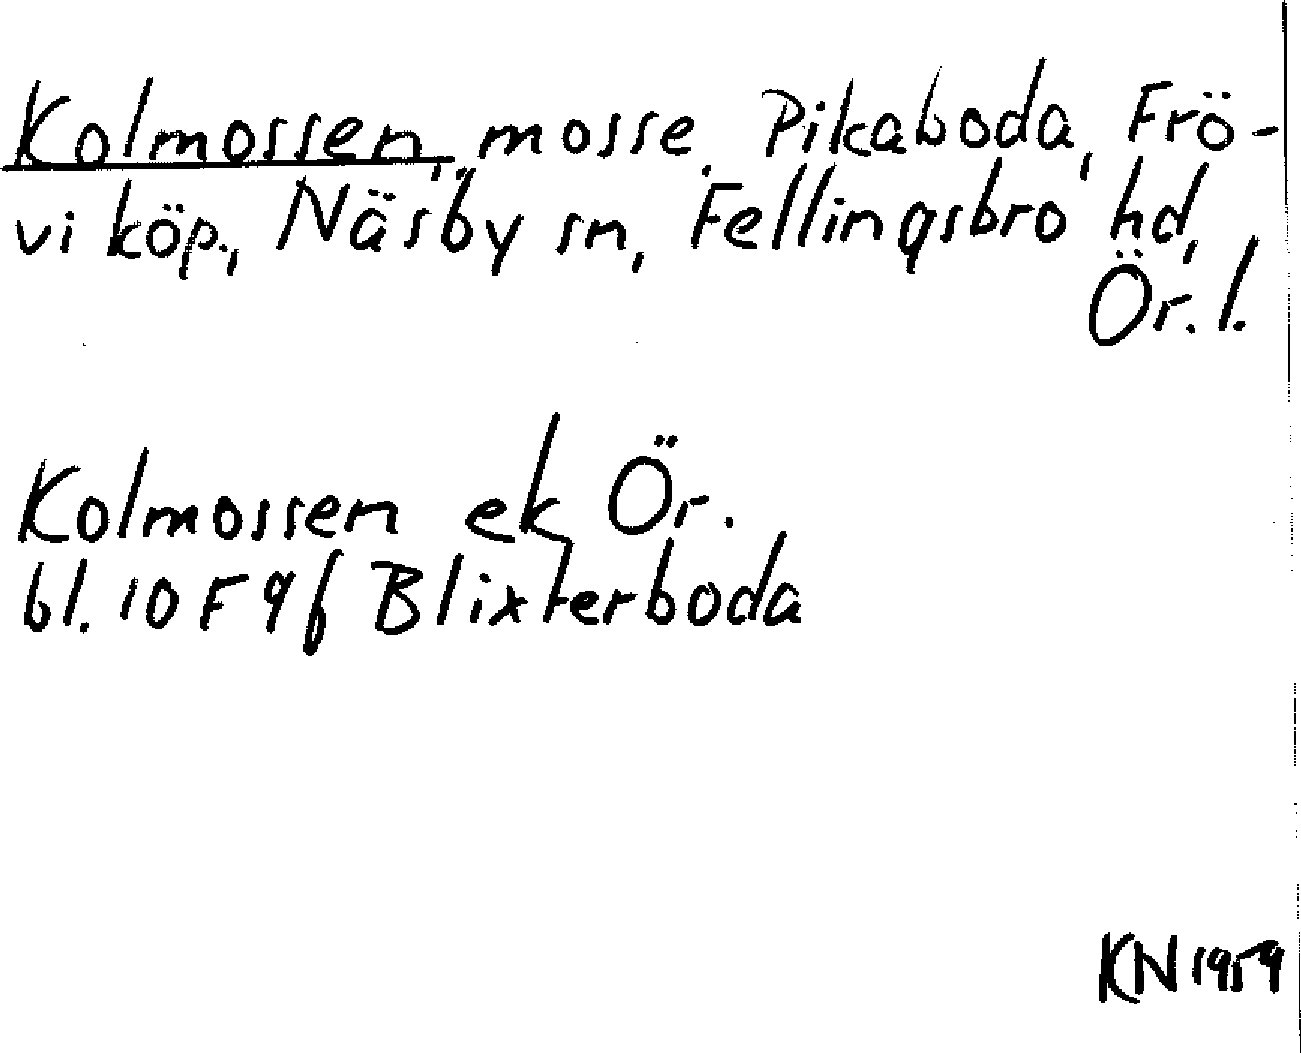 Kolmossen, mosse, Pikaboda, Frö-
vi köp., Näsby sn, Fellingsbro hd,
Ör. l.
Kolmossen ek Ör.
bl. 10F 9f Blixterboda
KN 1959